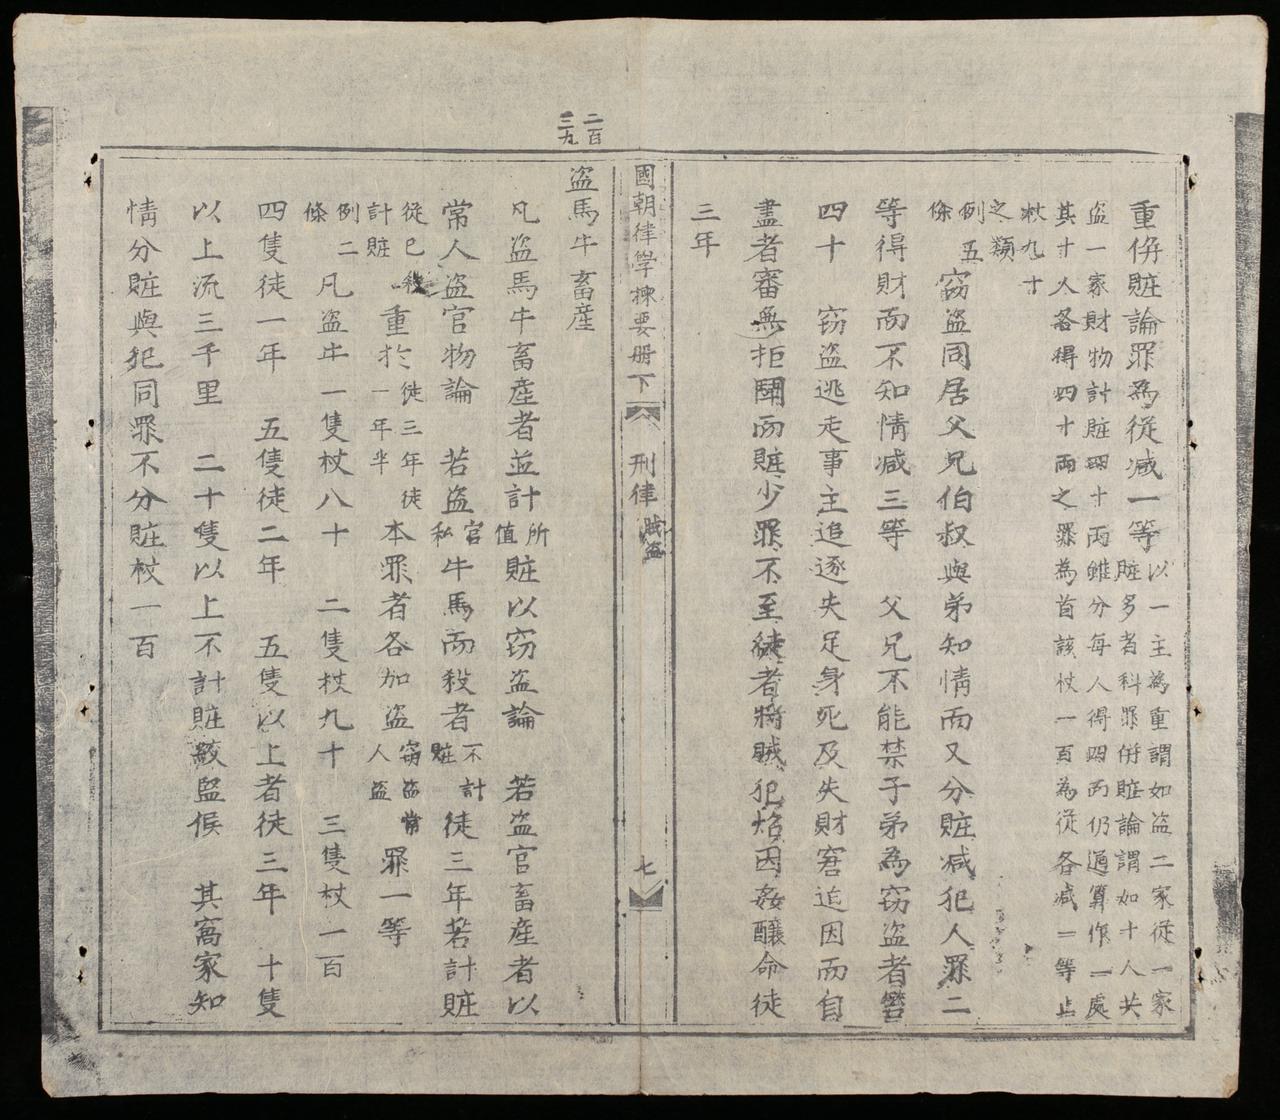 重併賍論罪為從减一等以一主為重謂如盗二家從一家
賍多者科罪併賍論謂如十人共
盗一家財物計賍四十兩雖分每人得四兩仍通算作一處
其十人各得四十兩之罪為首該杖一百為從各减一等止
杖九十
之類
例五
條
窃盗同居父兄伯叔與弟知情而又分賍减犯人罪二
等得財而不知情减三等 父兄不能禁子弟為窃盗者笞
四十 窃盗逃走事主追逐失足身死及失財窘迫因而自
盡者審無拒鬪而賍少罪不至徒者將賊犯照因姦釀命徒
三年
國朝律學揀要册下 刑律 賊盗 七
二百
三九
盗馬牛畜産
凡盗馬牛畜産者並計所
值賍以窃盗論 若盗官畜産者以
常人盗官物論 若盗官
私牛馬而殺者不計
賍徒三年若計賍
從已殺
計賍重於徒三年徒
一年半本罪者各加盗窃盗常
人盗罪一等
例二
條凡盗牛一隻杖八十 二隻杖九十 三隻杖一百
四隻徒一年 五隻徒二年 五隻以上者徒三年 十隻
以上流三千里 二十隻以上不計賍絞監候 其窩家知
情分賍與犯同罪不分賍杖一百